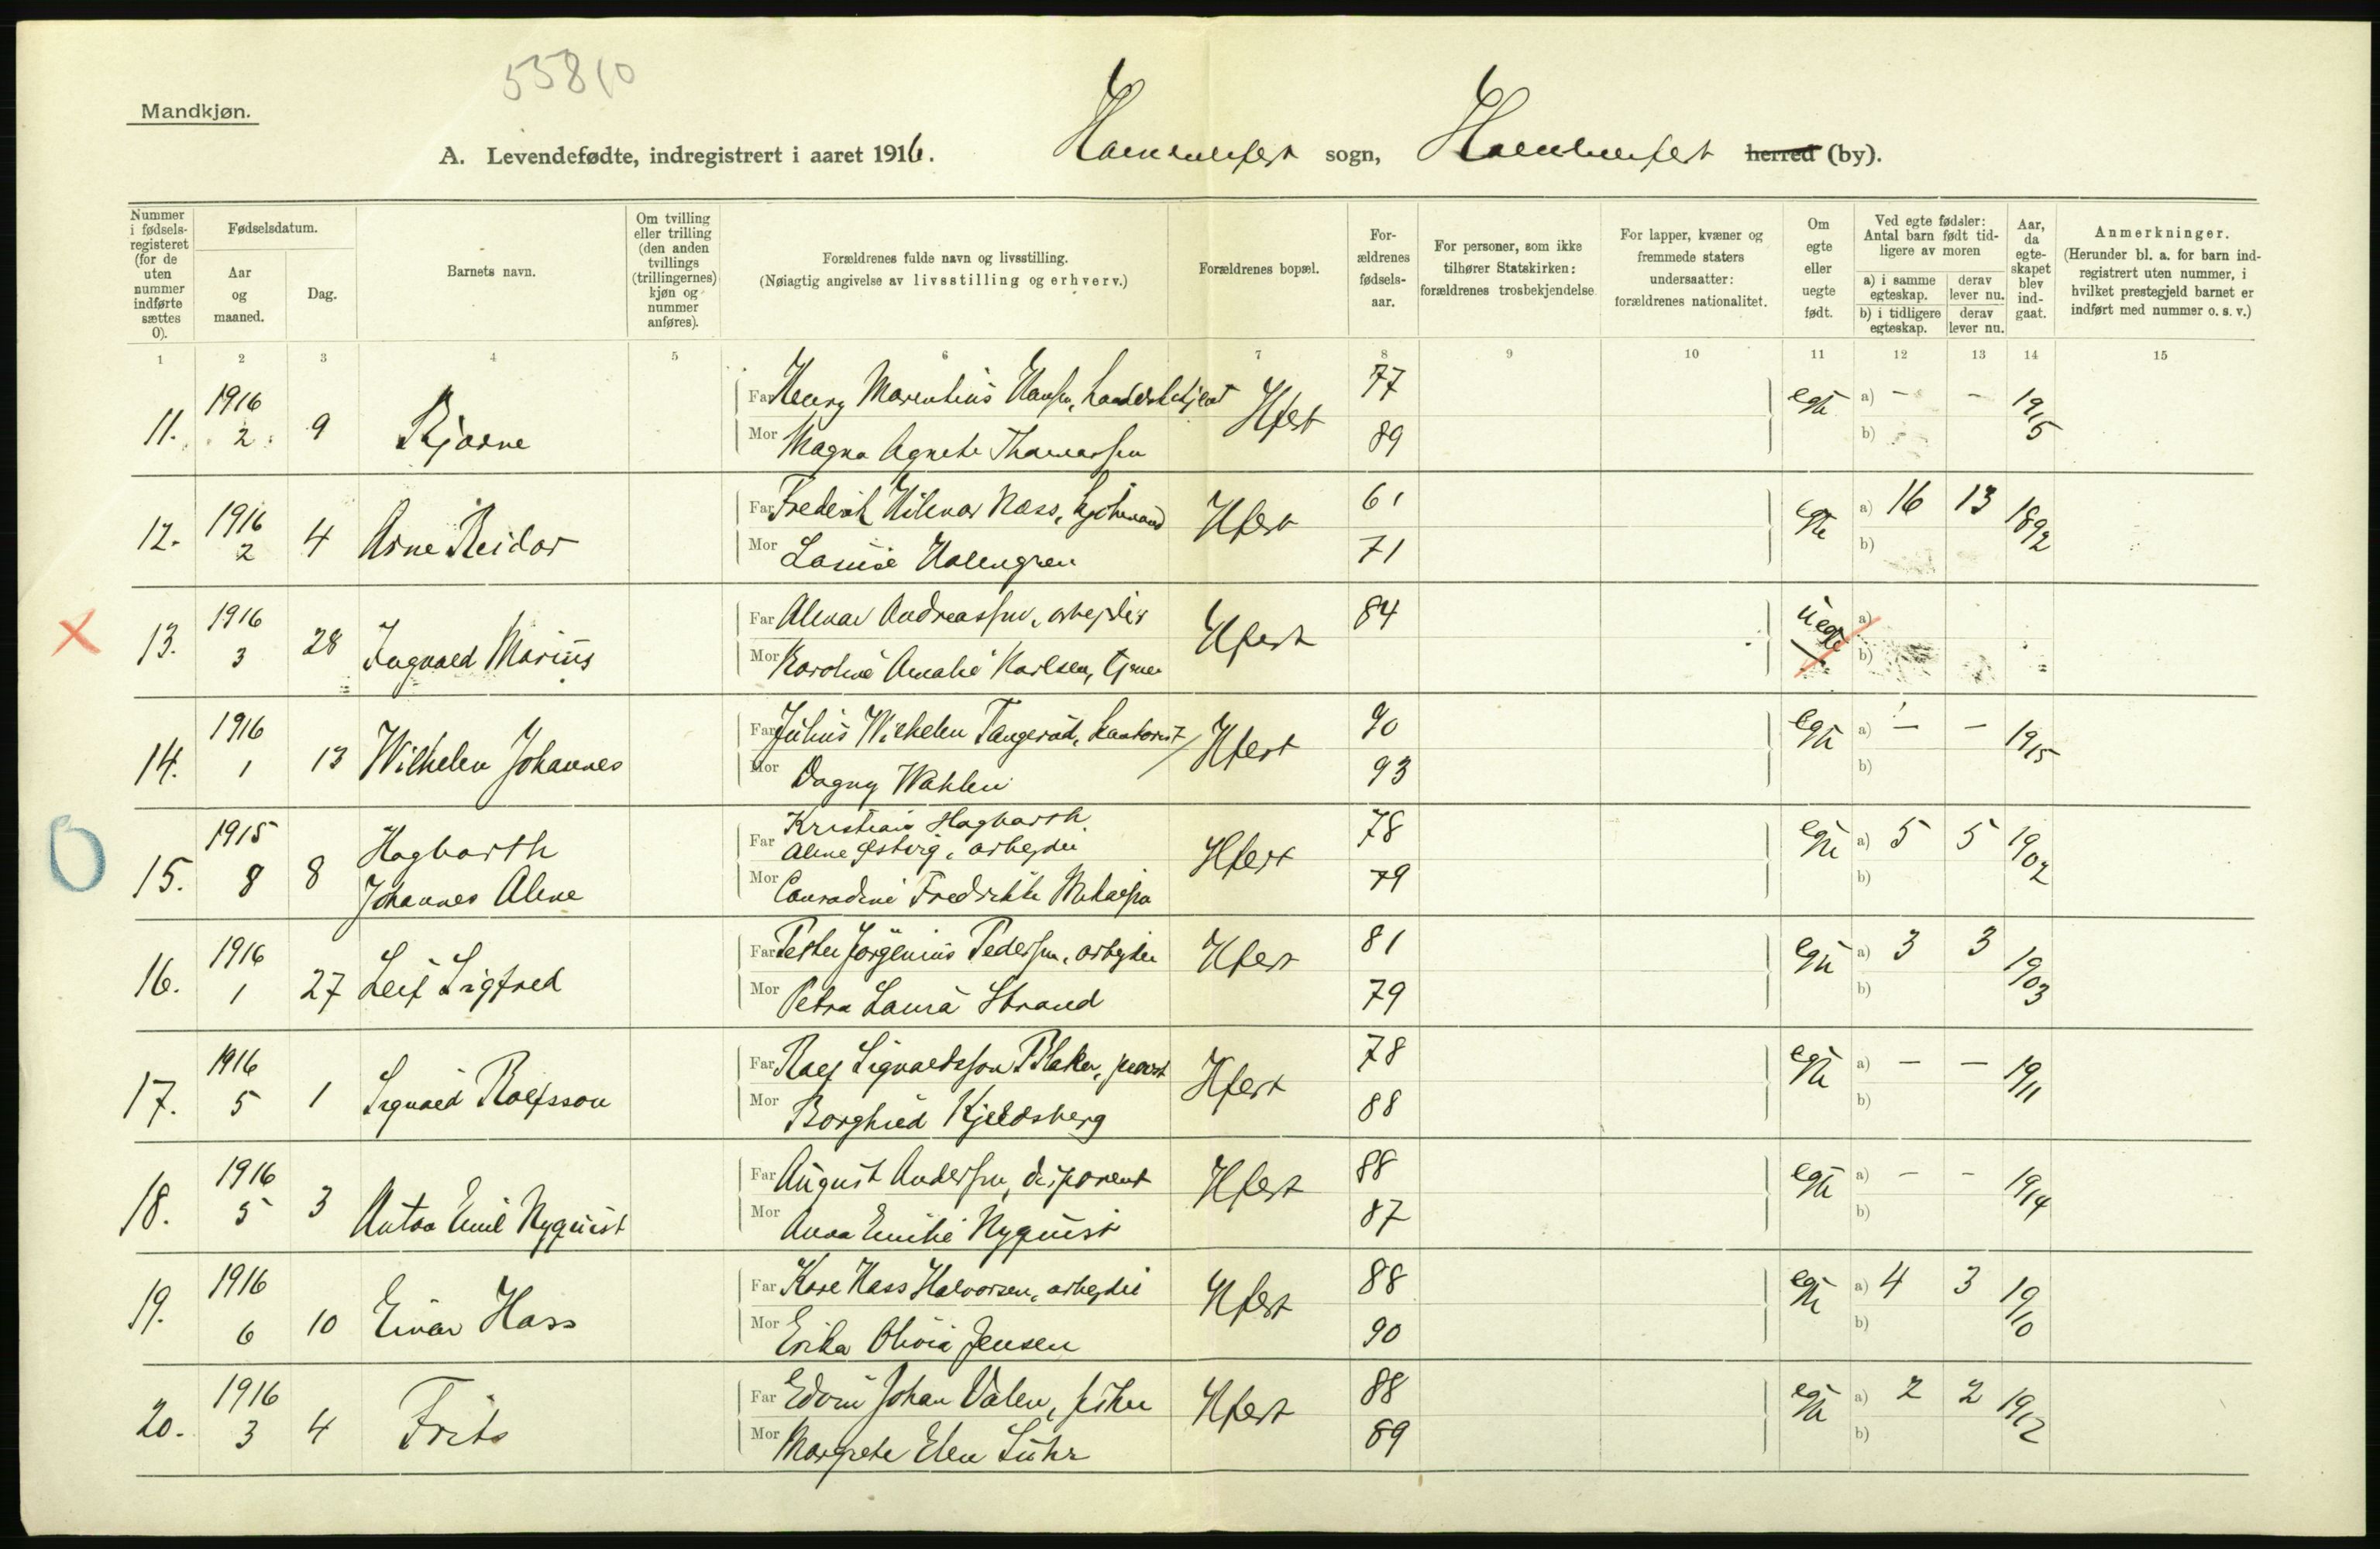 55810
Mandkjøn.
A. Levendefødte, indregistrert i aaret 1916. Hammerfest sogn, Hammerfest herred (by).
Nummer i fødsels-registeret (for de uten nummer indførte sættes 0).
Fødselsdatum.
Aar og maaned.
Dag.
Barnets navn.
Om tvilling eller trilling (den anden tvillings (trillingernes) kjøn og nummer anføres).
Forældrenes fulde navn og livsstilling.
(Nøiagtig angivelse av livsstilling og erhverv.)
Forældrenes bopæl.
For-ældrenes fødsels-aar.
For personer, som ikke tilhører Statskirken: forældrenes trosbekjendelse
For lapper, kvæner og fremmede staters undersaatter: forældrenes nationalitet.
Om egte eller uegte født.
Ved egte fødsler: Antal barn født tid-ligere av moren
a) i samme egteskap.
derav lever nu.
b) i tidligere egteskap.
derav lever nu.
Aar, da egte-skapet blev ind-gaat.
Anmerkninger.
(Herunder bl. a. for barn ind-registrert uten nummer, i hvilket prestegjeld barnet er indført med nummer o. s. v.)
1 2 3 4 5 6 7 8 9 10 11 12 13 14 15
11. 1916 2 9 Bjarne
Far Henry Marentius Hansen, handelsbetjent Hfest 77 egte a) – – 1915
Mor Magna Agnete Thomassen 89 b)
12. 1916 2 4 Arne Reidar
Far Frederik Hilmar Næss, Hfest 61 egte a) 16 13 1892
Mor Lovise Holmgren 71 b)
13. 1916 3 28 Ingvald Marius
Far Almar Andreassen, arbeider Hfest 84 uegte a)
Mor Karoline Amalie Karlsen, tjener b)
14. 1916 1 13 Wilhelm Johannes
Far Julius Wilhelm Tangerud, kontorist Hfest 90 egte a) – – 1915
Mor Dagny Wahlen 93 b)
15. 1915 8 8 Hagbarth Johannes Alme
Far Kristian Hagbarth Alme Isberg, arbeider Hfest 78 egte a) 5 5 1902
Mor Conradine Fredrikke Mikalsen 79 b)
16. 1916 1 27 Leif Sigfred
Far Petter Jørgenius Pedersen, arbeider Hfest 81 egte a) 3 3 1903
Mor Petra Laura Strand 79 b)
17. 1916 5 1 Sigvald Rolfsson
Far Rolf Sigvaldsson Blaker, Hfest 78 egte a) – – 1911
Mor Borghild Kjeldsberg 88 b)
18. 1916 5 3 Anton Emil Nyquist
Far August Andersen, disponent Hfest 88 egte a) – – 1914
Mor Anna Emilie Nyquist 87 b)
19. 1916 6 10 Einar Hass
Far Kare Hass Halvorsen, arbeider Hfest 88 egte a) 4 3 1910
Mor Erika Olivia Jensen 90 b)
20. 1916 3 4 Frits
Far Edvin Johan Valen, fisker Hfest 88 egte a) 2 2 1912
Mor Margrete Elen Suhr 89 b)